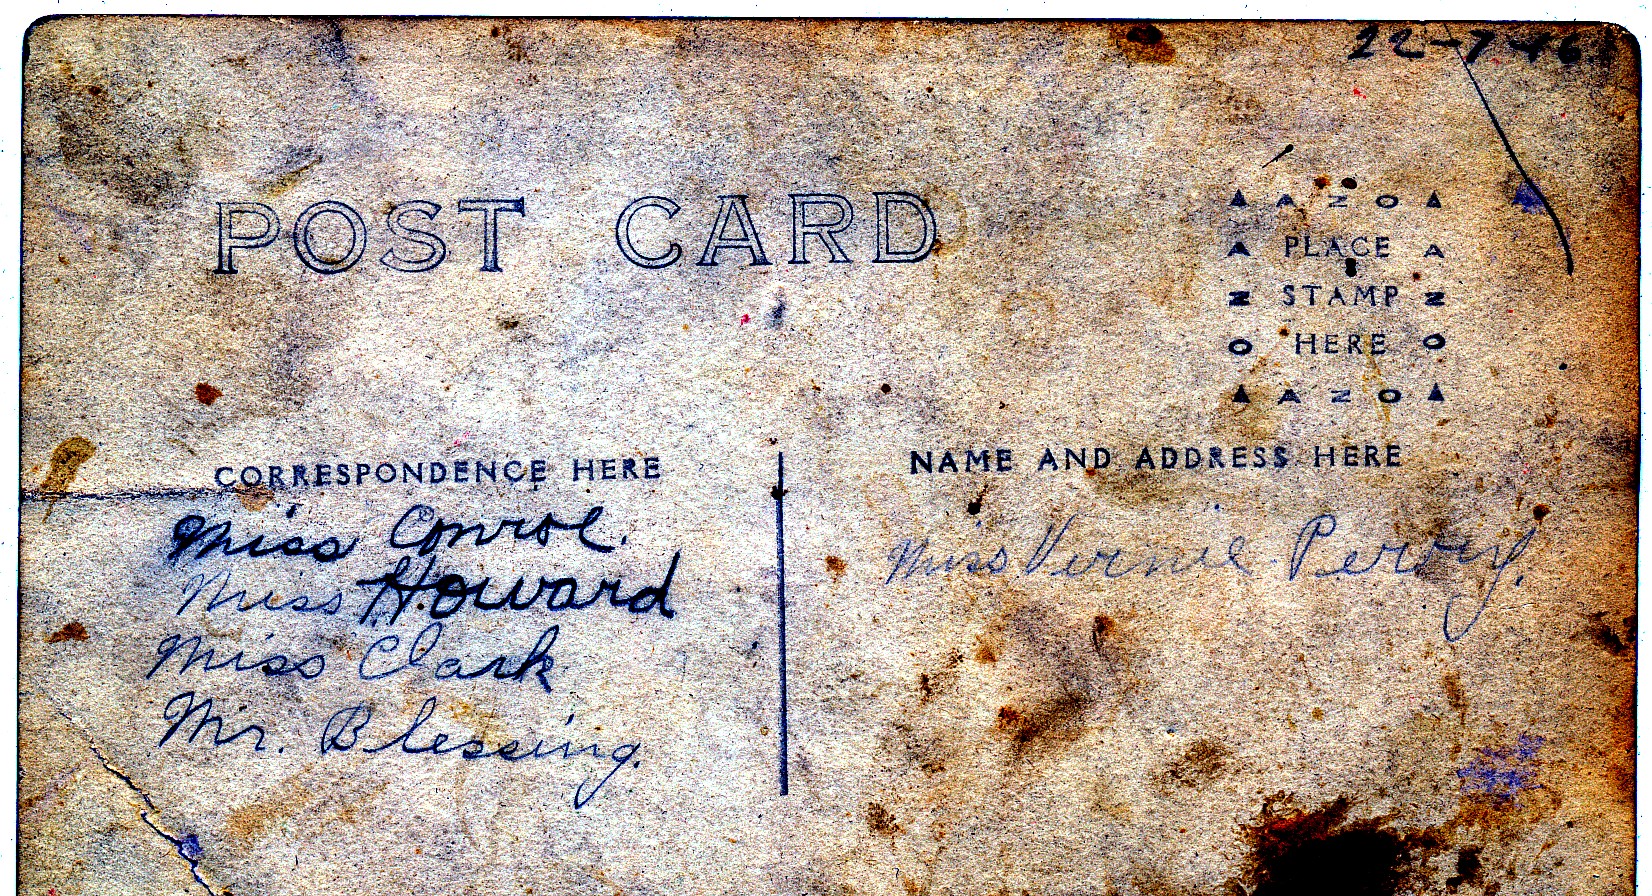 22-7-46
POST CARD
AZO
PLACE
STAMP
HERE
AZO
CORRESPONDENCE HERE
NAME AND ADDRESS HERE
Miss Conroe.
Miss Howard
Miss Clark
Mr. Blessing.
Miss Vernie Perry.